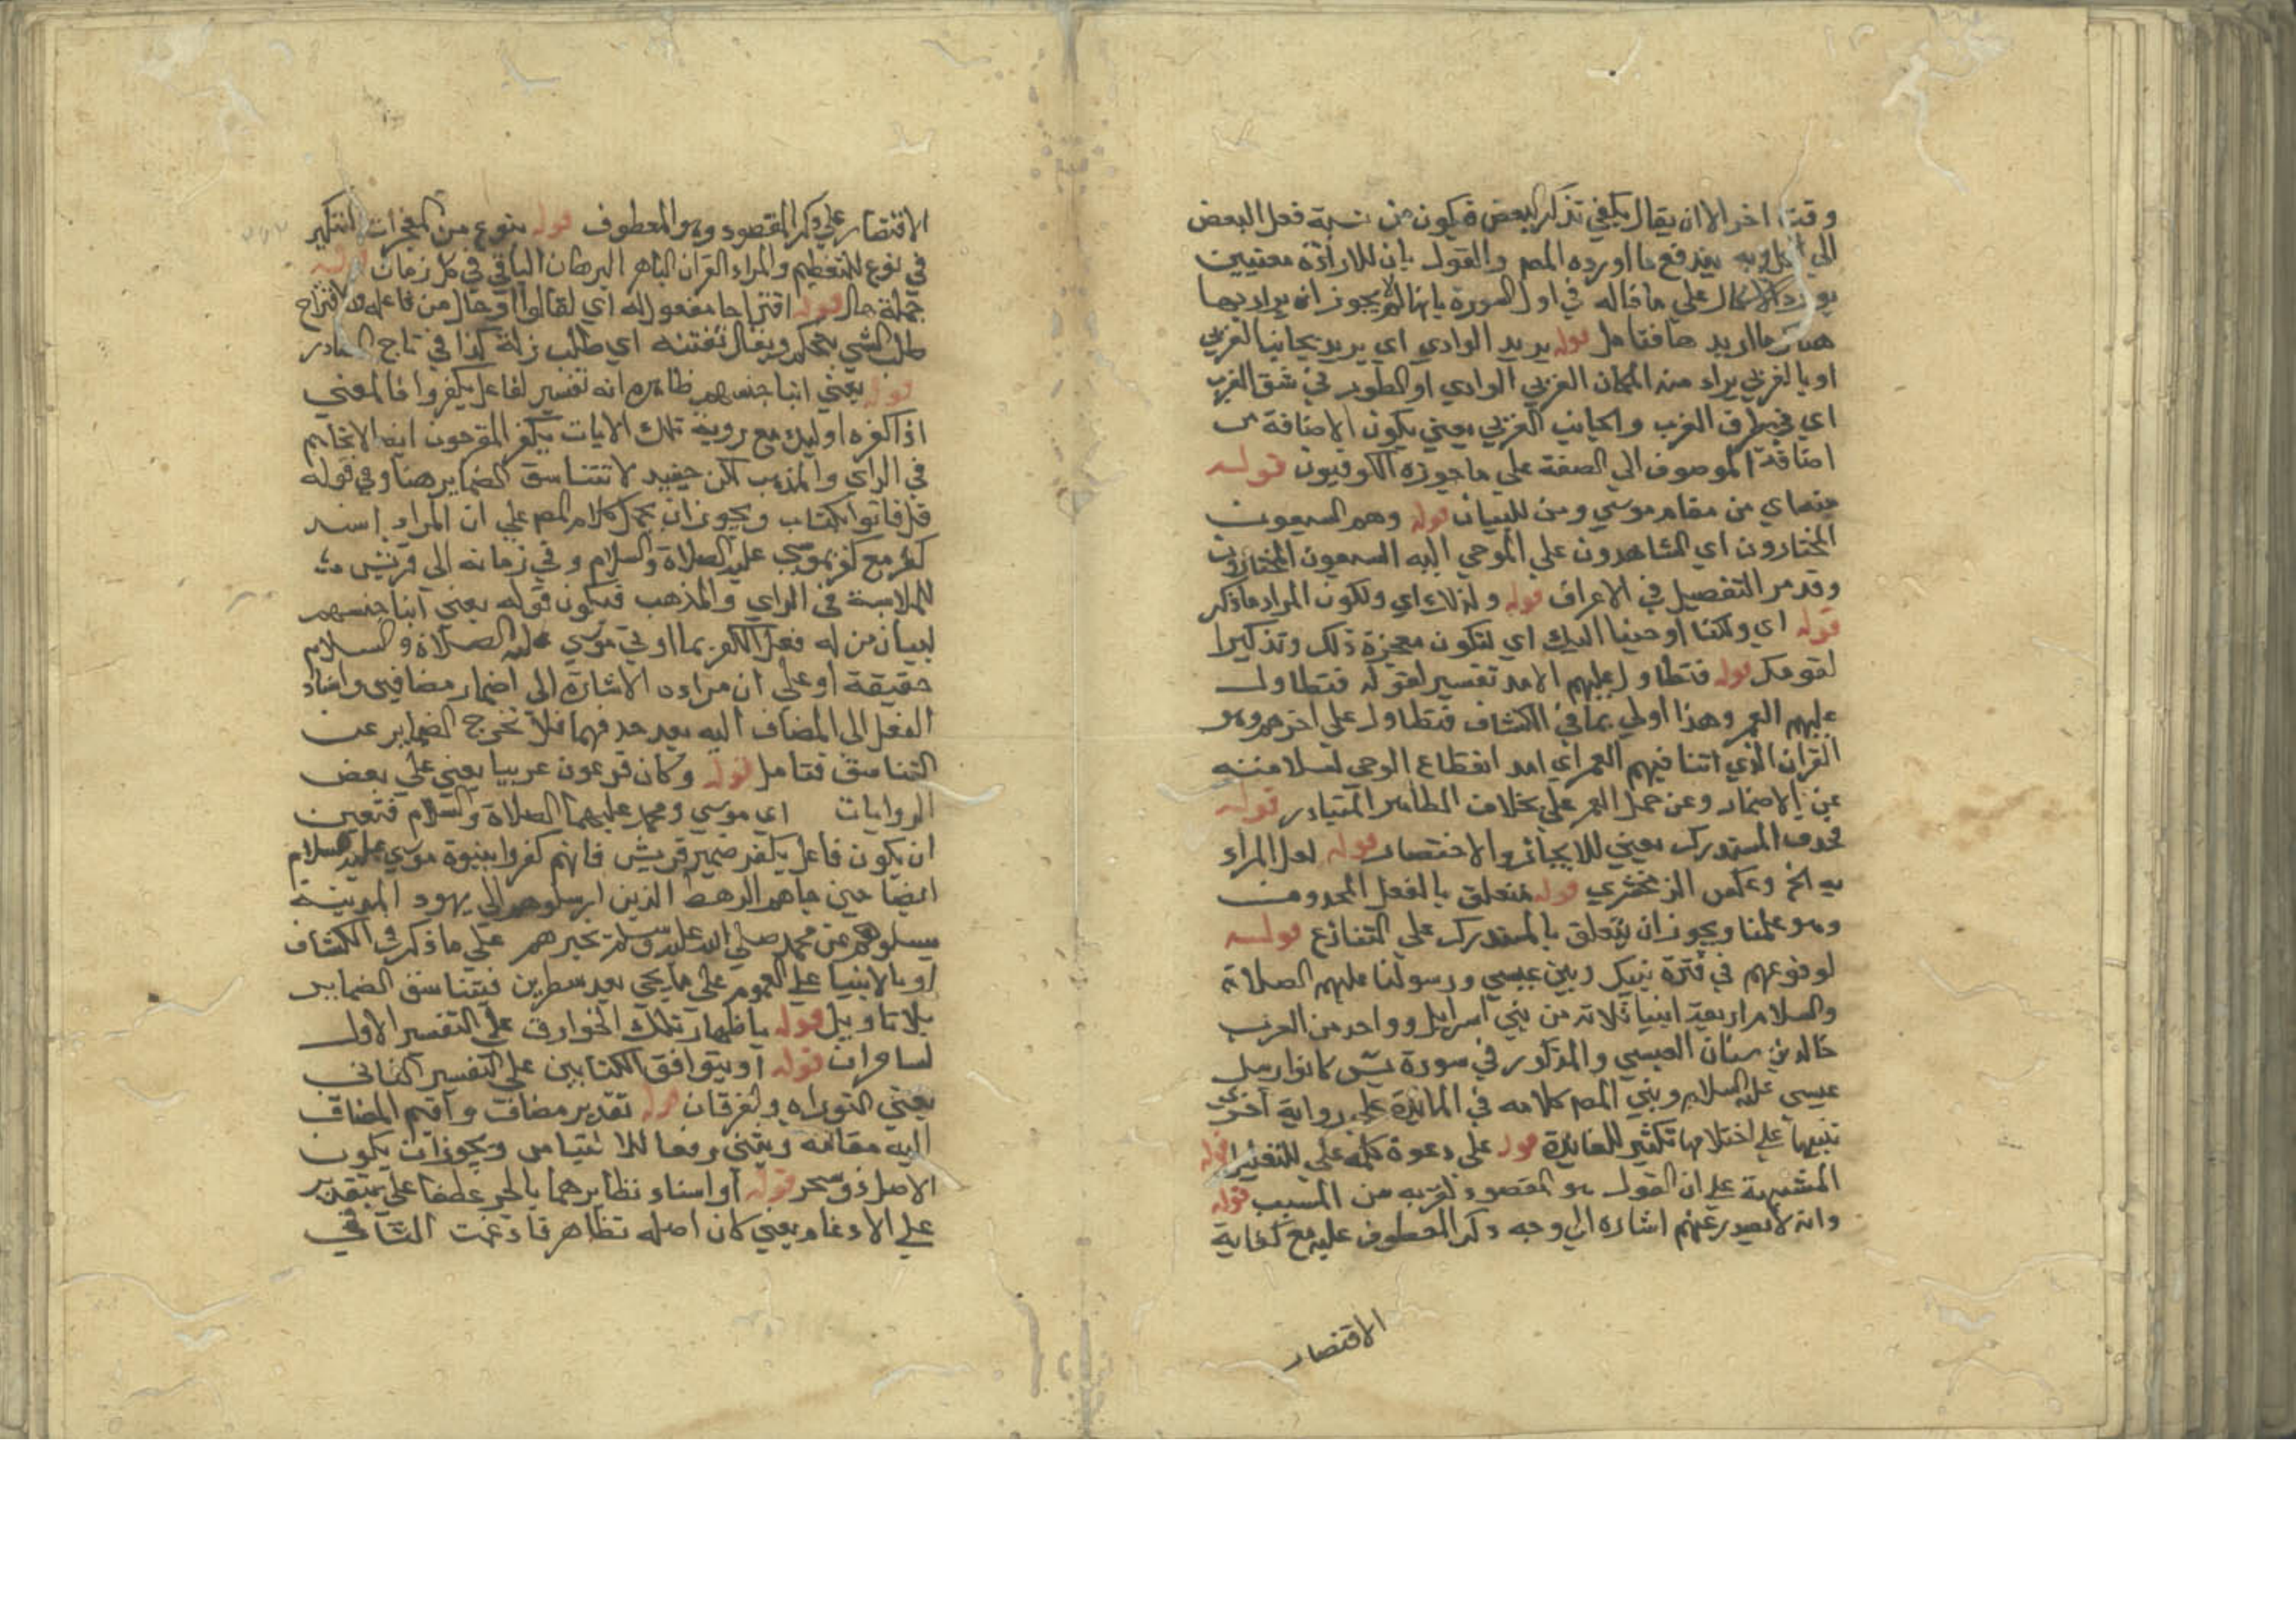 وقت اخر الا ان يقال يكفي تذكر البعض فيكون من نسبة فعل البعض
الي الكل وبه يندفع ما اورده المص والقول بان للارادة معنيين
يورد الاشكال علي ما قاله في اول السورة بانها لم لا يجوز ان يراد بها
هناك ما اريد هنا فتامل قوله يريد الوادي اي يريد بجانب الغربي
او بالغربي يراد منه المكان الغربي الوادي او الطور في شق الغرب
اي في طرف الغرب والجانب الغربي يعني يكون الاضافة من
اضافة الموصوف الي الصفة علي ما جوزه الكوفيون قوله
منها اي من مقام موسي ومن للبيان قوله وهم السبعون
المختارون اي الشاهدون علي الموحي اليه السبعون المختارون
وقد مر التفصيل في الاعراف قوله ولذلك اي ولكون المراد ما ذكر
قوله اي ولكنا اوحينا اليك اي لتكون معجزة ذلك وتذكيرا
لقومك قوله فتطاول عليهم الامد تفسير لقوله فتطاول
عليهم العمر وهذا اولي بما في الكشاف فتطاول علي اخرهم وهو
القرن الذي انتنا فيهم العمر اي امد انقطاع الوحي لسلامته
عن الاضمار وعن حمل العمر علي خلاف الظاهر المتبادر قوله
فحذف المستدرك يعني للايجاز والاختصار قوله لعل المراد
به الخ وعكس الزمخشري قوله متعلق بالفعل المحذوف
وهو علمنا ويجوز ان يتعلق بالمستدرك علي التنازع قوله
لوقوعهم في فترة بينك وبين عيسي ورسولنا عليهم الصلاة
والسلام اربعة انبيا ثلاثة من بني اسرايل وواحد من العرب
خالد بن سنان العبسي والمذكور في سورة يس كانوا رسل
عيسي عليه السلام وبني المص كلامه في المائدة علي رواية اخري
تنبيها علي اختلافها تكثير للفائدة قوله علي دعوة كلمة علي للتعليل قوله
المشبهة علي ان القول هو المقصود لقربه من المسبب قوله
وانه لا يصدر عنهم اشارة الي وجه ذكر المعطوف عليه مع كفاية
الاقتصار
الاقتصار علي ذكر المقصود وهو المعطوف قوله بنوع من المعجزات التنكير
في نوع للتعظيم والمراد القران الباهر البرهان الباقي في كل زمان قوله
جملة حال قوله اقتراحا مفعول له اي لقالوا او حال من فاعله والاقتراح
طلب الشي بتحكم ويقال تعنته اي طلب زلة كذا في تاج المصادر
قوله يعني ابنا جنسهم ظاهره انه تفسير لفاعل يكفروا فالمعني
اذا كفره اوليك مع روية تلك الايات يكفر المقرحون ايضا لاتحادهم
في الراي والمذهب لكن حينيذ لا تتناسق الضماير هنا وفي قوله
قل فاتوا بكتاب ويجوز ان يحمل كلام المص علي ان المراد اسند
كفر مع كفر بموسي عليه الصلاة والسلام وفي زمانه الي قريش
للملابسة في الراي والمذهب فيكون قوله يعني ابنا جنسهم
لبيان من له فعل الكفر بما اوتي موسي عليه الصلاة والسلام
حقيقة او علي ان مراده الاشارة الي اضمار مضافين واسناد
الفعل الي المضاف اليه بعد حذفهما فلا تخرج الضماير عن
التناسق فتامل قوله وكان فرعون عربيا يعني علي بعض
الروايات اي موسي ومحمد عليهما الصلاة والسلام فتعين
ان يكون فاعل يكفر ضمير قريش فانهم كفروا بنبوة موسي عليه السلام
ايضا حين جاهم الرهط الذين ارسلوهم الي يهود المدينة
يسلوهم عن محمد صلي الله عليه وسلم تخبرهم علي ما ذكر في الكشاف
او بالانبيا علي العموم علي ما يجي بعد سطرين فيتناسق الضماير
بلا تاويل قوله باظهار تلك الخوارق علي التفسير الاول
لساحران قوله او بتوافق الكتابين علي التفسير الثاني
يعني التوراه والفرقان قوله تقدير مضاف واقيم المضاف
اليه مقامه وبثني رفعا للالتباس ويجوز ان يكون
الاصل ذو سحر قوله او اسناد تظاهرهما بالجر عطفا علي بتقدير
علي الادغام يعني كان اصله تظاهر فادغمت التا في